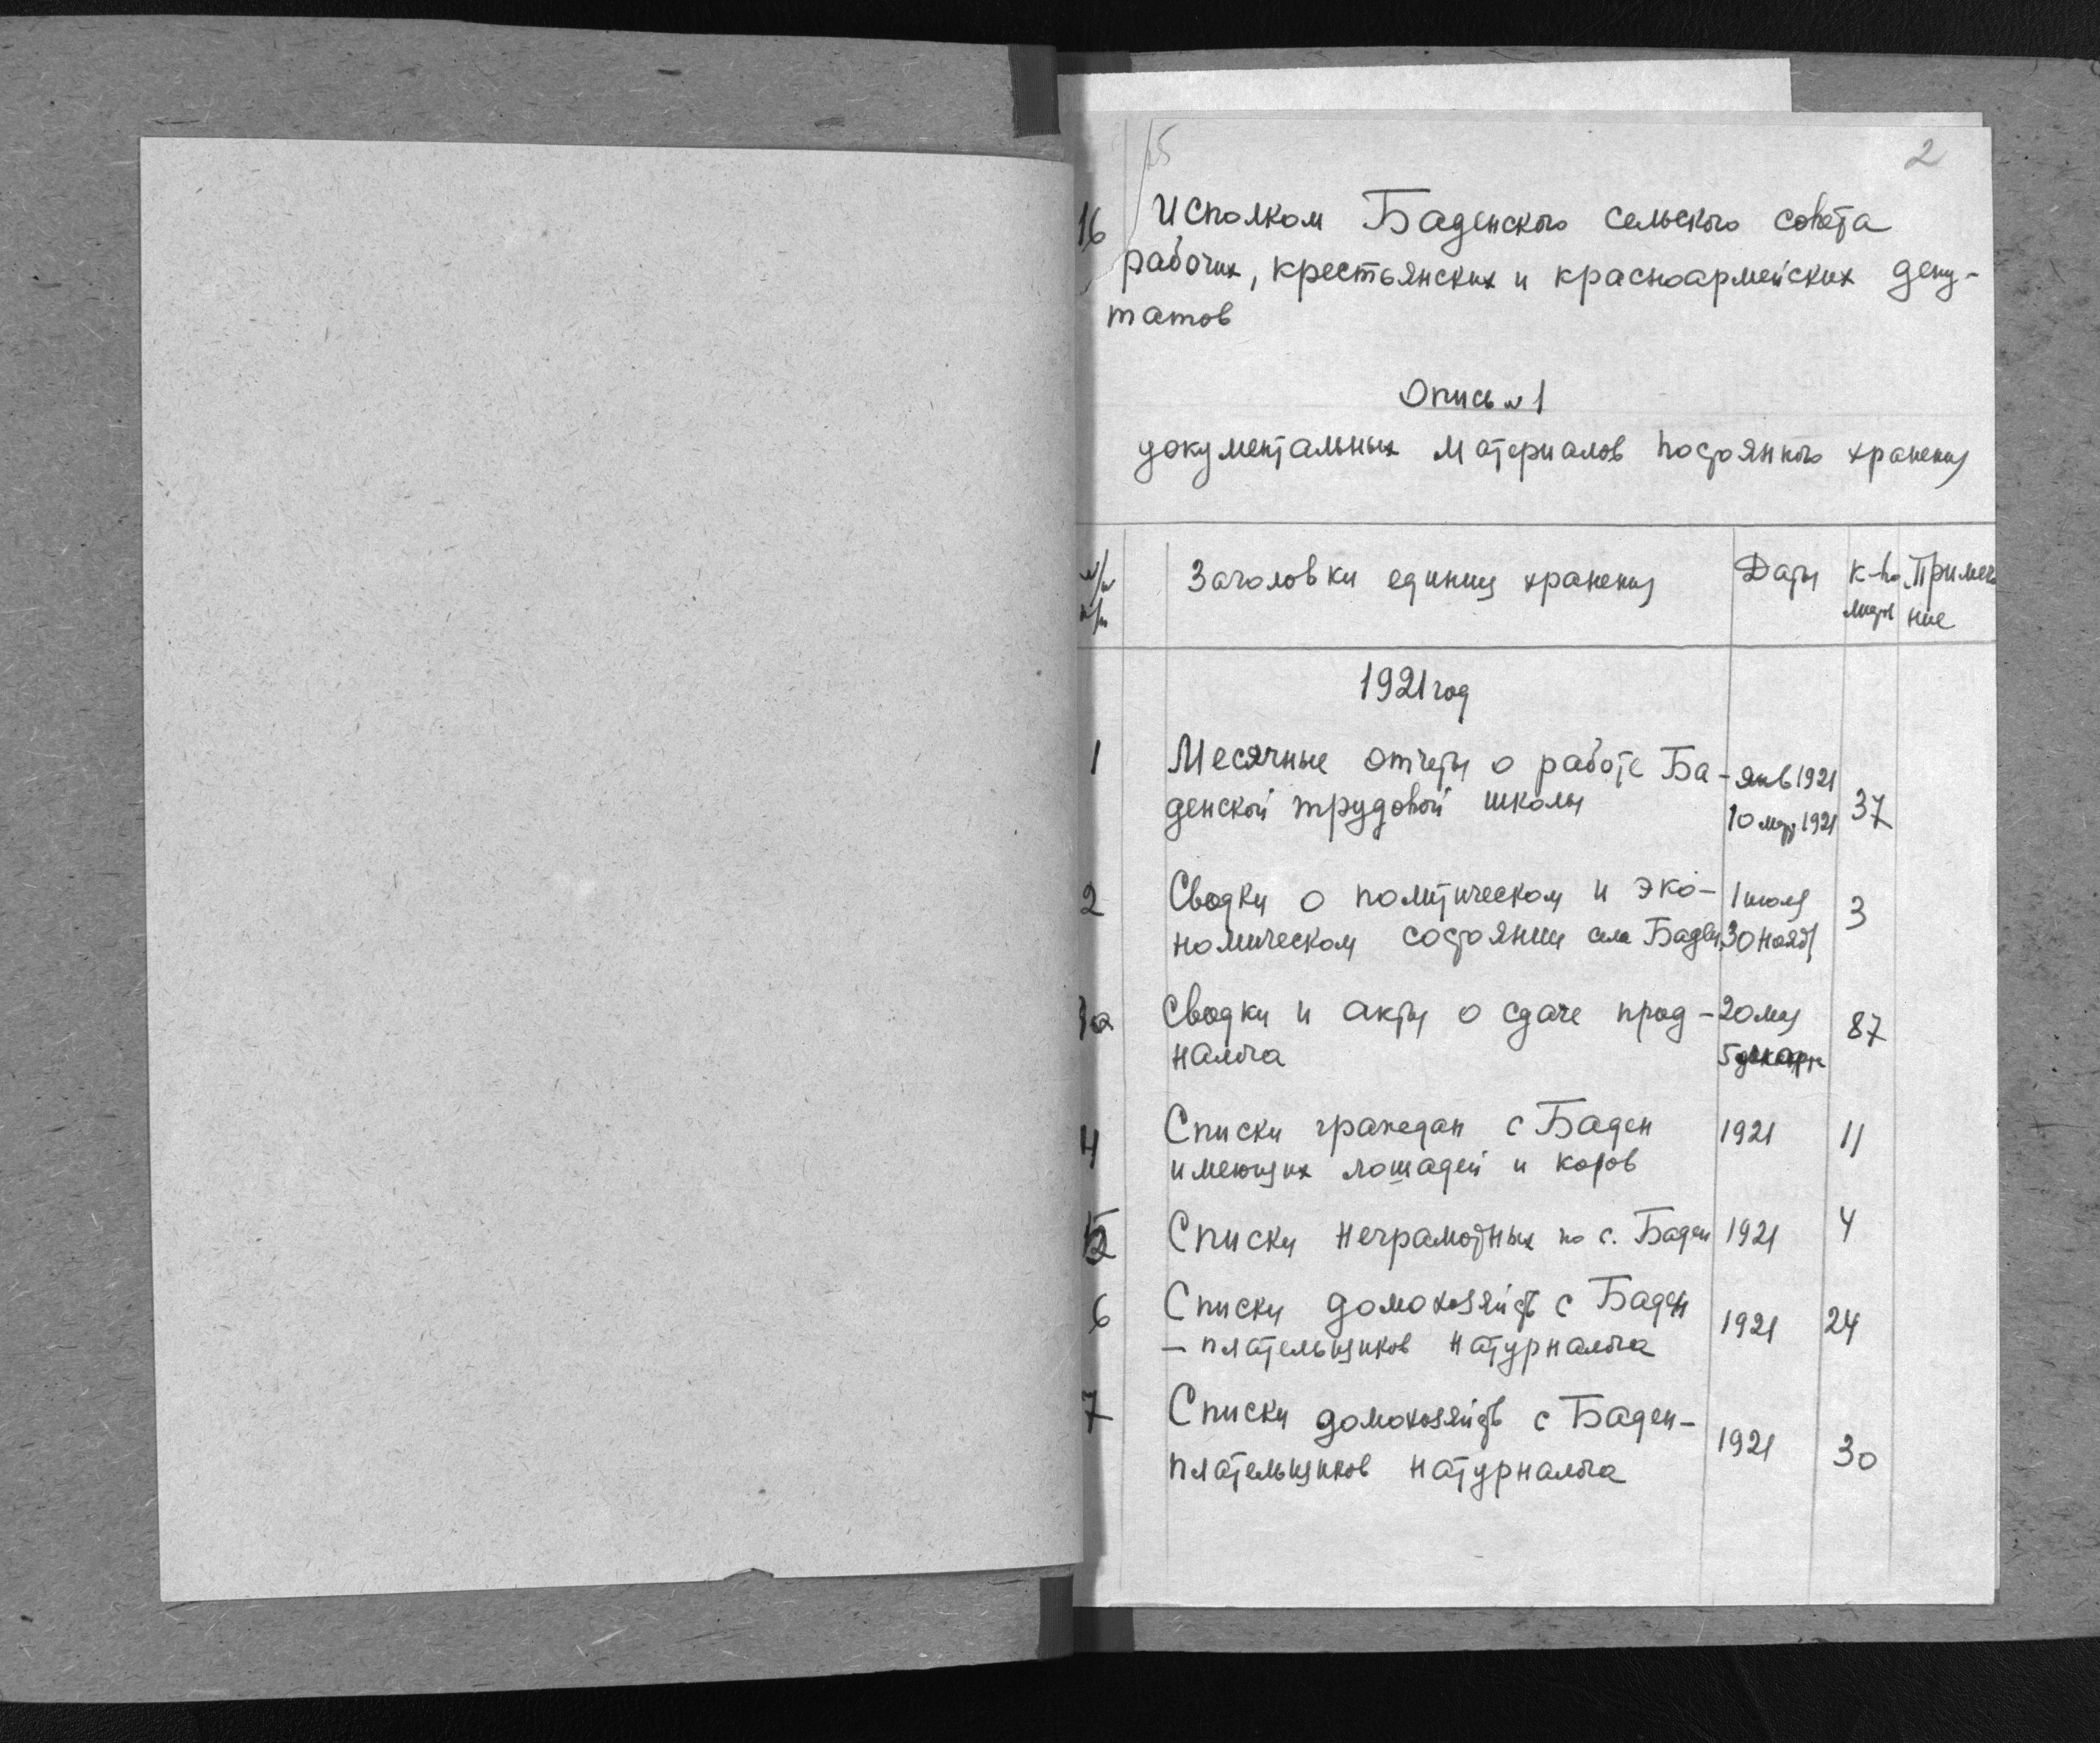 15
2
16
Исполком Баденского сельского совета
рабочих, крестьянских и красноармейских депу-
татов
Опись № 1
документальных материалов постоянного хранения
№/№ Заголовки единиц хранения Даты к-во Примеч
п/п листов ние
1921 год
1 Месячные отчеты о работе Ба- янв 1921
денской трудовой школы 10 мар 1921 37
2 Сводки о политическом и эко- 1 июля 3
номическом состоянии села Баден 30 нояб
3а Сводки и акты о сдаче прод- 20 мая 87
налога 5 декабря
4 Списки граждан с Баден 1921 11
имеющих лошадей и коров
5 Списки неграмотных по с. Баден 1921 4
6 Списки домохозяйств с Баден 1921 24
- плательщиков натурналога
7 Списки домохозяйств с Баден- 1921 30
плательщиков натурналога